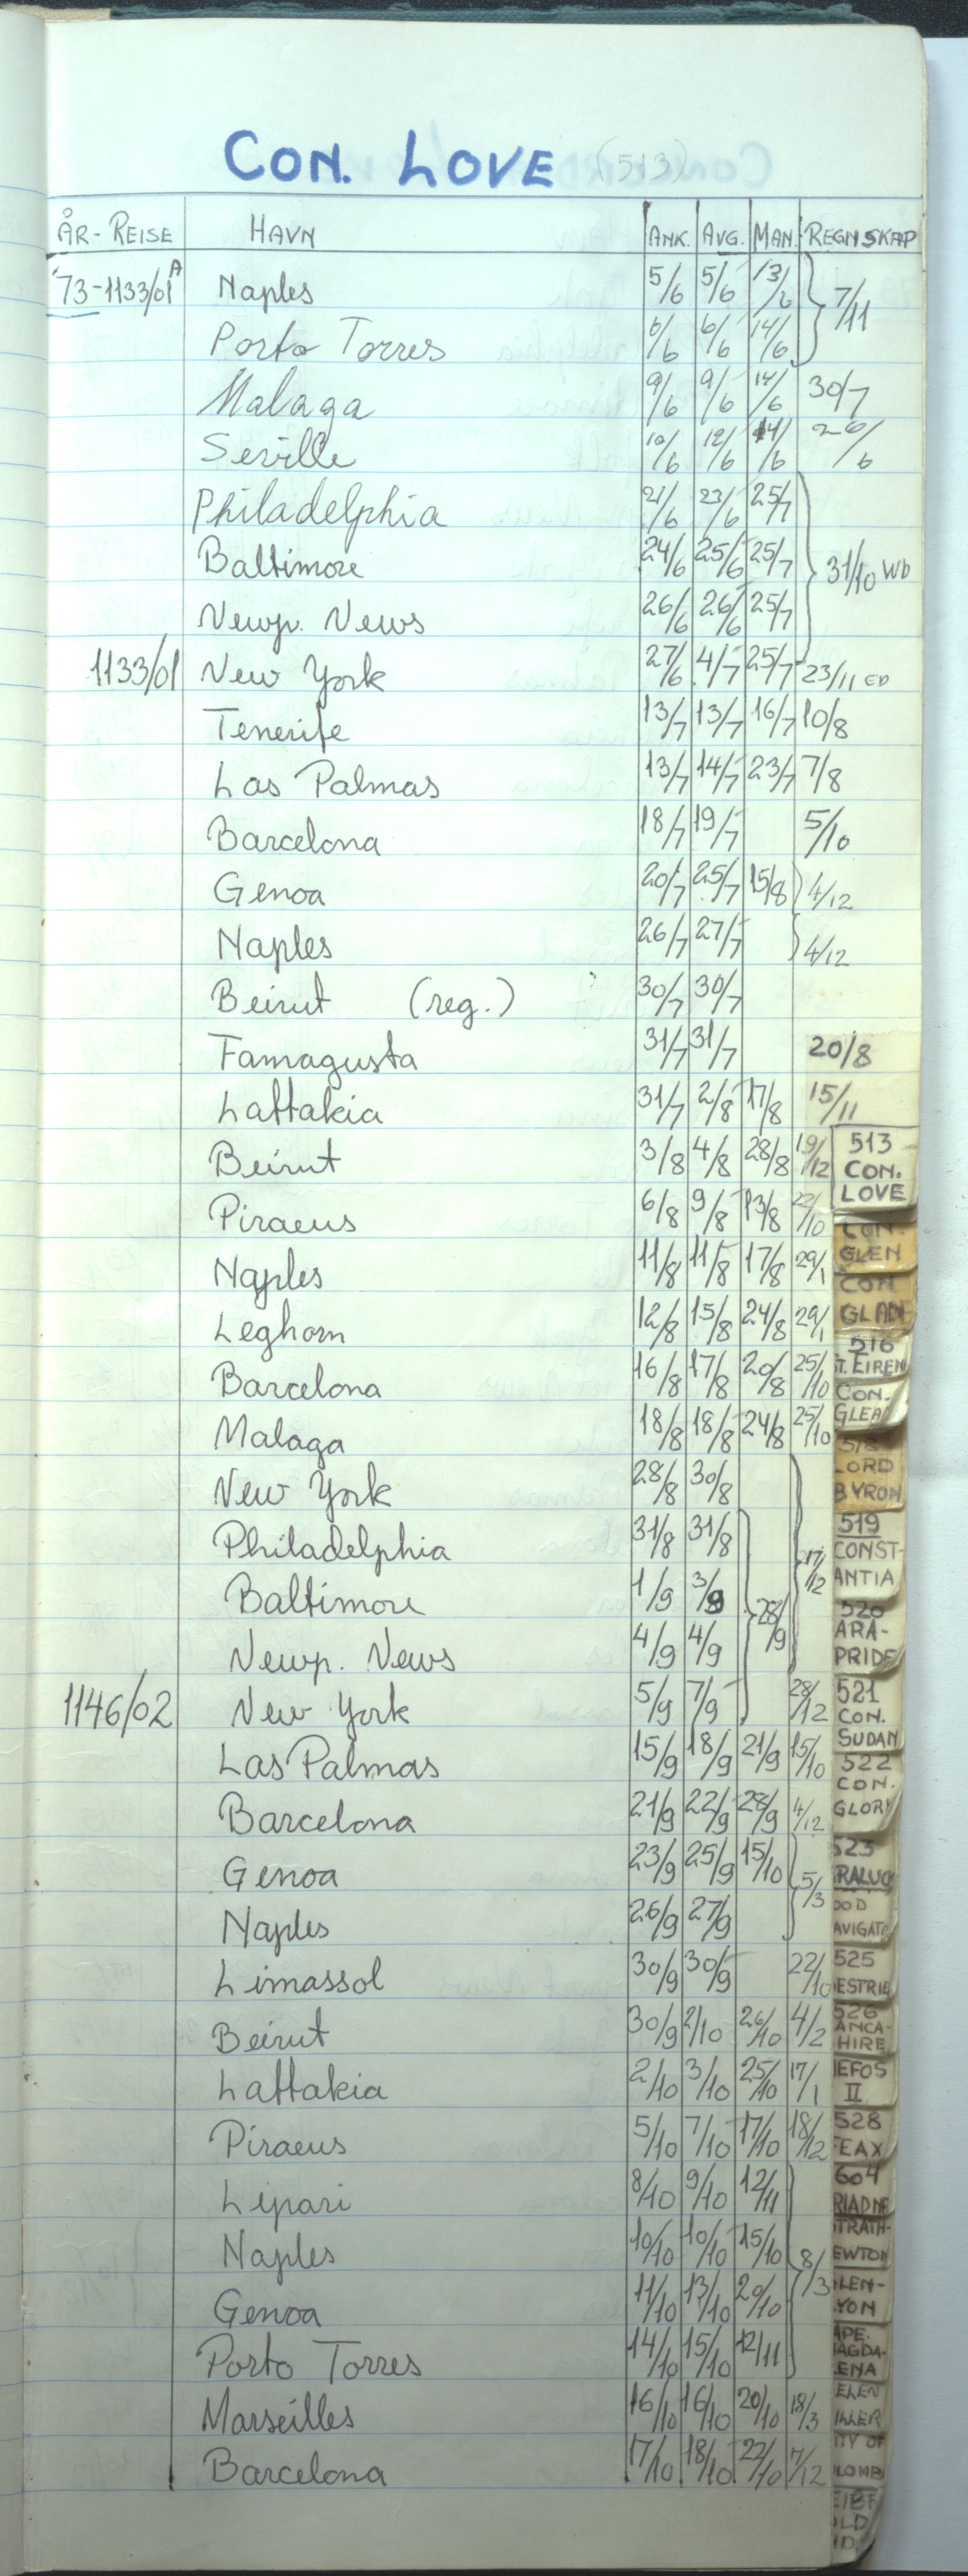 CON. LOVE (513)
ÅR-REISE HAVN ANK. AVG. MAN. REGNSKAP
'73-1133/01A Naples 5/6 5/6 13/6 7/11
Porto Torres 6/6 6/6 14/6
Malaga 9/6 9/6 14/6 30/7
Seville 10/6 12/6 14/6 26/6
Philadelphia 21/6 23/6 25/7
Baltimore 24/6 25/6 25/7 31/10 WD
Newp. News 26/6 26/6 25/7
1133/01 New York 27/6 4/7 25/7 23/11 CD
Tenerife 13/7 13/7 16/7 10/8
Las Palmas 13/7 14/7 23/7 7/8
Barcelona 18/7 19/7 5/10
Genoa 20/7 25/7 15/8 4/12
Naples 26/7 27/7 4/12
Beirut (reg.) 30/7 30/7
Famagusta 31/7 31/7 20/8
Lattakia 31/7 2/8 17/8 15/11
Beirut 3/8 4/8 28/8 19/12
Piraeus 6/8 9/8 13/8 22/10
Naples 11/8 11/8 17/8 29/1
Leghorn 12/8 15/8 24/8 29/1
Barcelona 16/8 17/8 20/8 25/10
Malaga 18/8 18/8 24/8 25/10
New York 28/8 30/8
Philadelphia 31/8 31/8 17/12
Baltimore 1/9 3/9 28/9
Newp. News 4/9 4/9
1146/02 New York 5/9 7/9 28/12
Las Palmas 15/9 18/9 21/9 15/10
Barcelona 21/9 22/9 28/9 4/12
Genoa 23/9 25/9 15/10 5/3
Naples 26/9 27/9
Limassol 30/9 30/9 22/10
Beirut 30/9 2/10 26/10 4/2
Lattakia 2/10 3/10 25/10 17/1
Piraeus 5/10 7/10 17/10 18/12
Lipari 8/10 9/10 12/11
Naples 10/10 10/10 15/10 8/3
Genoa 11/10 13/10 20/10
Porto Torres 14/10 15/10 12/11
Marseilles 16/10 16/10 20/10 18/3
Barcelona 17/10 18/10 22/10 7/12
513
CON.
LOVE
CON.
GLEN
CON.
GLADE
516
ST. EIREN
CON.
GLEA
518
LORD
BYRON
519
CONST-
ANTIA
520
ARA-
PRIDE
521
CON.
SUDAN
522
CON.
GLORY
523
RALUCK
OOD
AVIGATO
525
ESTRIE
526
ANCA-
HIRE
EFOS
II
528
FEAX
604
RIADNE
TRATH-
EWTON
LEN-
YON
APE.
AGDA-
ENA
ELEN
ILLER
ITY OF
LOMB